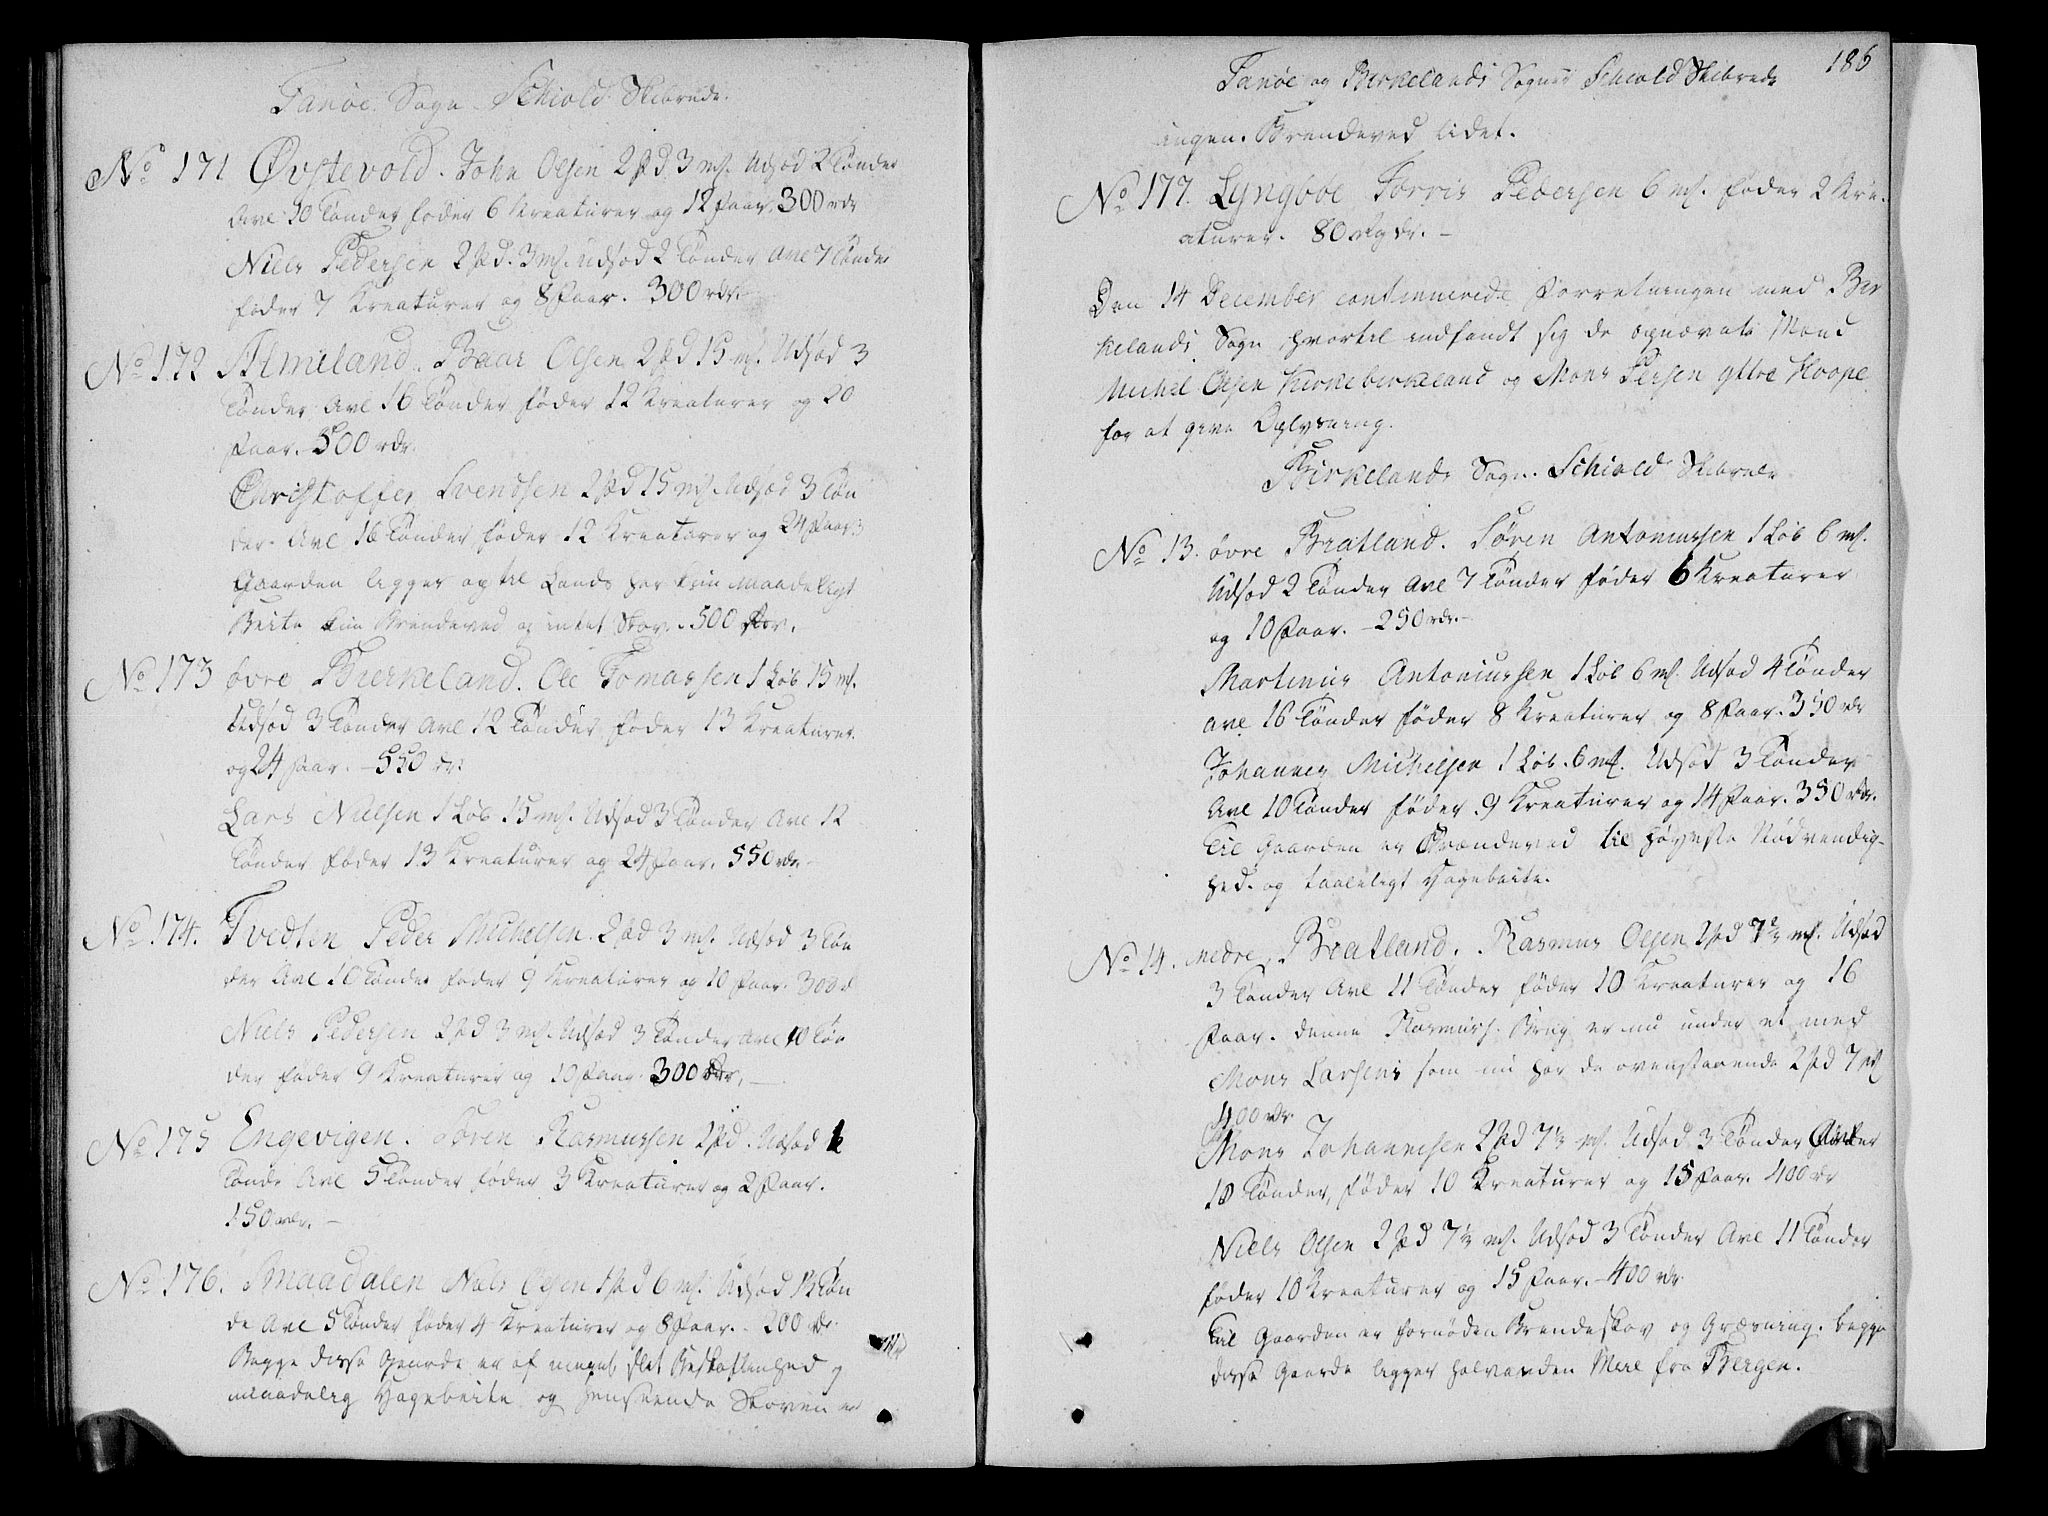 Fanøe Sogn Schiold Skibrede.
No 171 Øvstevold. John Olsen 2 Pd 3 mk. Udsæd 2 Tønder
Avl 10 Tønder føder 6 Kreaturer og 12 Faar. 300 rdr
Niels Pedersen 2 Pd. 3 mk. Udsæd 2 Tønder Avl 7 Tønder
føder 7 Kreaturer og 8 Faar. 300 rdr.
No 172 Almeland. Baar Olsen 2 Pd 15 mk. Udsæd 3
Tønder Avl 16 Tønder føder 12 Kreaturer og 20
Faar. 500 rdr.
Christoffer Svendsen 2 Pd 15 mk. Udsæd 3 Tøn
der Avl 16 Tønder føder 12 Kreaturer og 24 Faar
Gaarden ligger op til Lands har kun maadeligt
Beite kun Brendeved og intet Skov. 500 rdr.
No 173 øvre Bierkeland. Ole Tomassen 1 Løb 15 mk.
Udsæd 3 Tønder Avl 12 Tønder føder 13 Kreaturer
og 24 Faar. 550 dr.
Lars Nielsen 1 Løb 15 mk. Udsæd 3 Tønder Avl 12
Tønder føder 13 Kreaturer og 24 Faar. 550 rdr
No 174. Tvedten Peder Michelsen. 2 Pd 3 mk. Udsæd 3 Tøn
der Avl 10 Tønder føder 9 Kreaturer og 10 Faar. 300 d
Niels Pedersen 2 Pd 3 mk. Udsæd 3 Tønder Avl 10 Tøn
der føder 9 Kreaturer og 10 Faar. 300 rdr.
No 175 Engevigen. Søren Rasmussen 2 Pd. Udsæd 1
Tønde Avl 5 Tønder føder 3 Kreaturer og 2 Faar.
150 rdr.
No 176. Smaadalen Niels Olsen 1 Pd 6 mk. Udsæd 1½ Tøn
de Avl 5 Tønder føder 4 Kreaturer og 8 Faar. 200 rdr.
Begge disse Gaarde er af meget slet Beskaffenhed og
maadelig Hagebeite og henseende Skoven er
186
Fanøe og Birkelands Sogner Schiold Skibrede
ingen. Brendeved lidet.
No 177. Lyngboe Torris Pedersen 6 mk. føder 2 Kre-
aturer. 80 rdr.
Den 14 December continuerede Forretningen med Bir
kelands Sogn, hvortil indfandt sig de opnævnte Mænd
Michel Olsen Kirkebirkeland og Mons Persen yttre Hoope
for at give Oplysning.
Birkelands Sogn. Schiold Skibrede
No 13. øvre Bratland. Søren Antoniussen 1 Løb 6 mk.
Udsæd 2 Tønder Avl 7 Tønder føder 6 Kreaturer
og 10 Faar. 250 rdr.
Martinus Antoniussen 1 Løb 6 mk. Udsæd 4 Tønder
Avl 16 Tønder føder 8 Kreaturer og 8 Faar. 350 rdr
Johannes Michelsen 1 Løb. 6 mk. Udsæd 3 Tønder
Avl 10 Tønder føder 9 Kreaturer og 14 Faar. 350 rdr.
Til Gaarden er Brændeved til høyeste Nødvendig-
hed. og taaleligt Hagebeite.
No 14. nedre Bratland. Rasmus Olsen 2 Pd 7½ mk. Udsæd
3 Tønder Avl 11 Tønder føder 10 Kreaturer og 16
Faar. denne Rasmus's Brug er nu under et med
Mons Larsens som nu har de ovenstaaende 2 Pd 7 mk
400 rdr.
Mons Johannesen 2 Pd 7½ mk. Udsæd 3 Tønder
10 Tønder, føder 10 Kreaturer og 15 Faar. 400 rdr
Niels Olsen 2 Pd 7½ mk. Udsæd 3 Tønder Avl 11 Tønder
føder 10 Kreaturer og 15 Faar. 400 rdr.
Til Gaarden er fornøden Brendeskov og Græsning. begge
disse Gaarde ligger halvanden Mile fra Bergen.